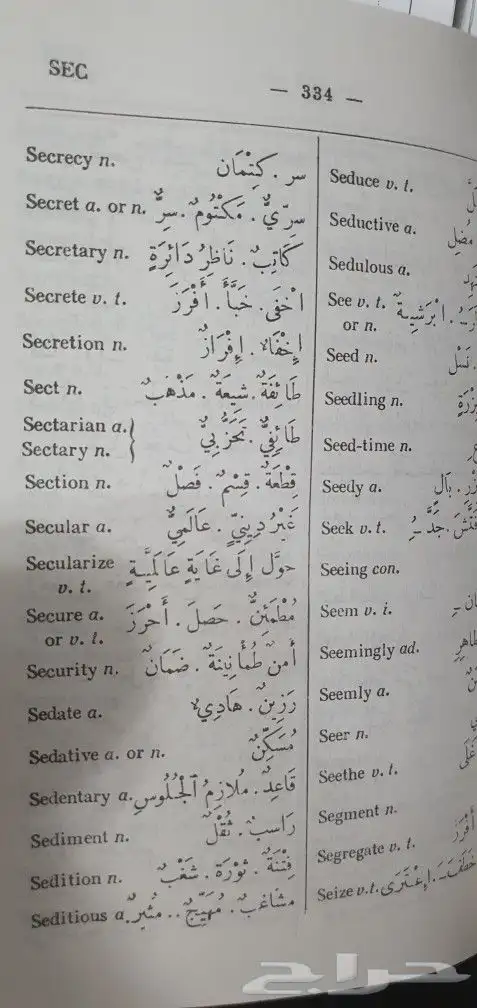 SEC
— 334 —
Secrecy n. سر . كِتْمَان
Secret a. or n. سِرِّيٌّ . مَكْتُومٌ . سِرٌّ
Secretary n. كَاتِبٌ . نَاظِرُ دَائِرَةٍ
Secrete v. t. اخْفَى . خَبَّأَ . أَفْرَزَ
Secretion n. إِخْفَاءٌ . إِفْرَازٌ
Sect n. طَائِفَةٌ . شِيعَةٌ . مَذْهَبٌ
Sectarian a.
Sectary n. } طَائِفِيٌّ . تَحَزُّبِيٌّ
Section n. قِطْعَةٌ . قِسْمٌ . فَصْلٌ
Secular a. غَيْرُ دِينِيٍّ . عَالَمِيٌّ
Secularize حوَّل إِلَى غَايَةٍ عَالَمِيَّةٍ
v. t.
Secure a. مُطْمَئِنٌّ . حَصَلَ . أَحْرَزَ
or v. t.
Security n. أَمن طُمْأنِينَةٌ . ضَمَانٌ
Sedate a. رَزِينٌ . هَادِيءٌ
Sedative a. or n. مُسَكِّنٌ
Sedentary a. قَاعِدٌ . مُلَازِمُ الْجُلُوسِ
Sediment n. رَاسِبٌ . ثُفْلٌ
Sedition n. فِتْنَةٌ . ثَوْرَةٌ . شَغْبٌ
Seditious a. مشَاغبٌ . مُهَيِّجٌ . . مثيرٌ
Seduce v. t.
Seductive a. مضل
Sedulous a.
See v. t. ابْرَشِيةٌ
or n.
Seed n. نَسْل
Seedling n.
Seed-time n.
Seedy a. بَال
Seek v. t. جَدَّ ـُ
Seeing con.
Seem v. i.
Seemingly ad.
Seemly a.
Seer n.
Seethe v. t.
Segment n.
Segregate v. t. أَفْرَزَ
Seize v.t. خَطَفَ ـَ . اِعْتَرَى
حراج